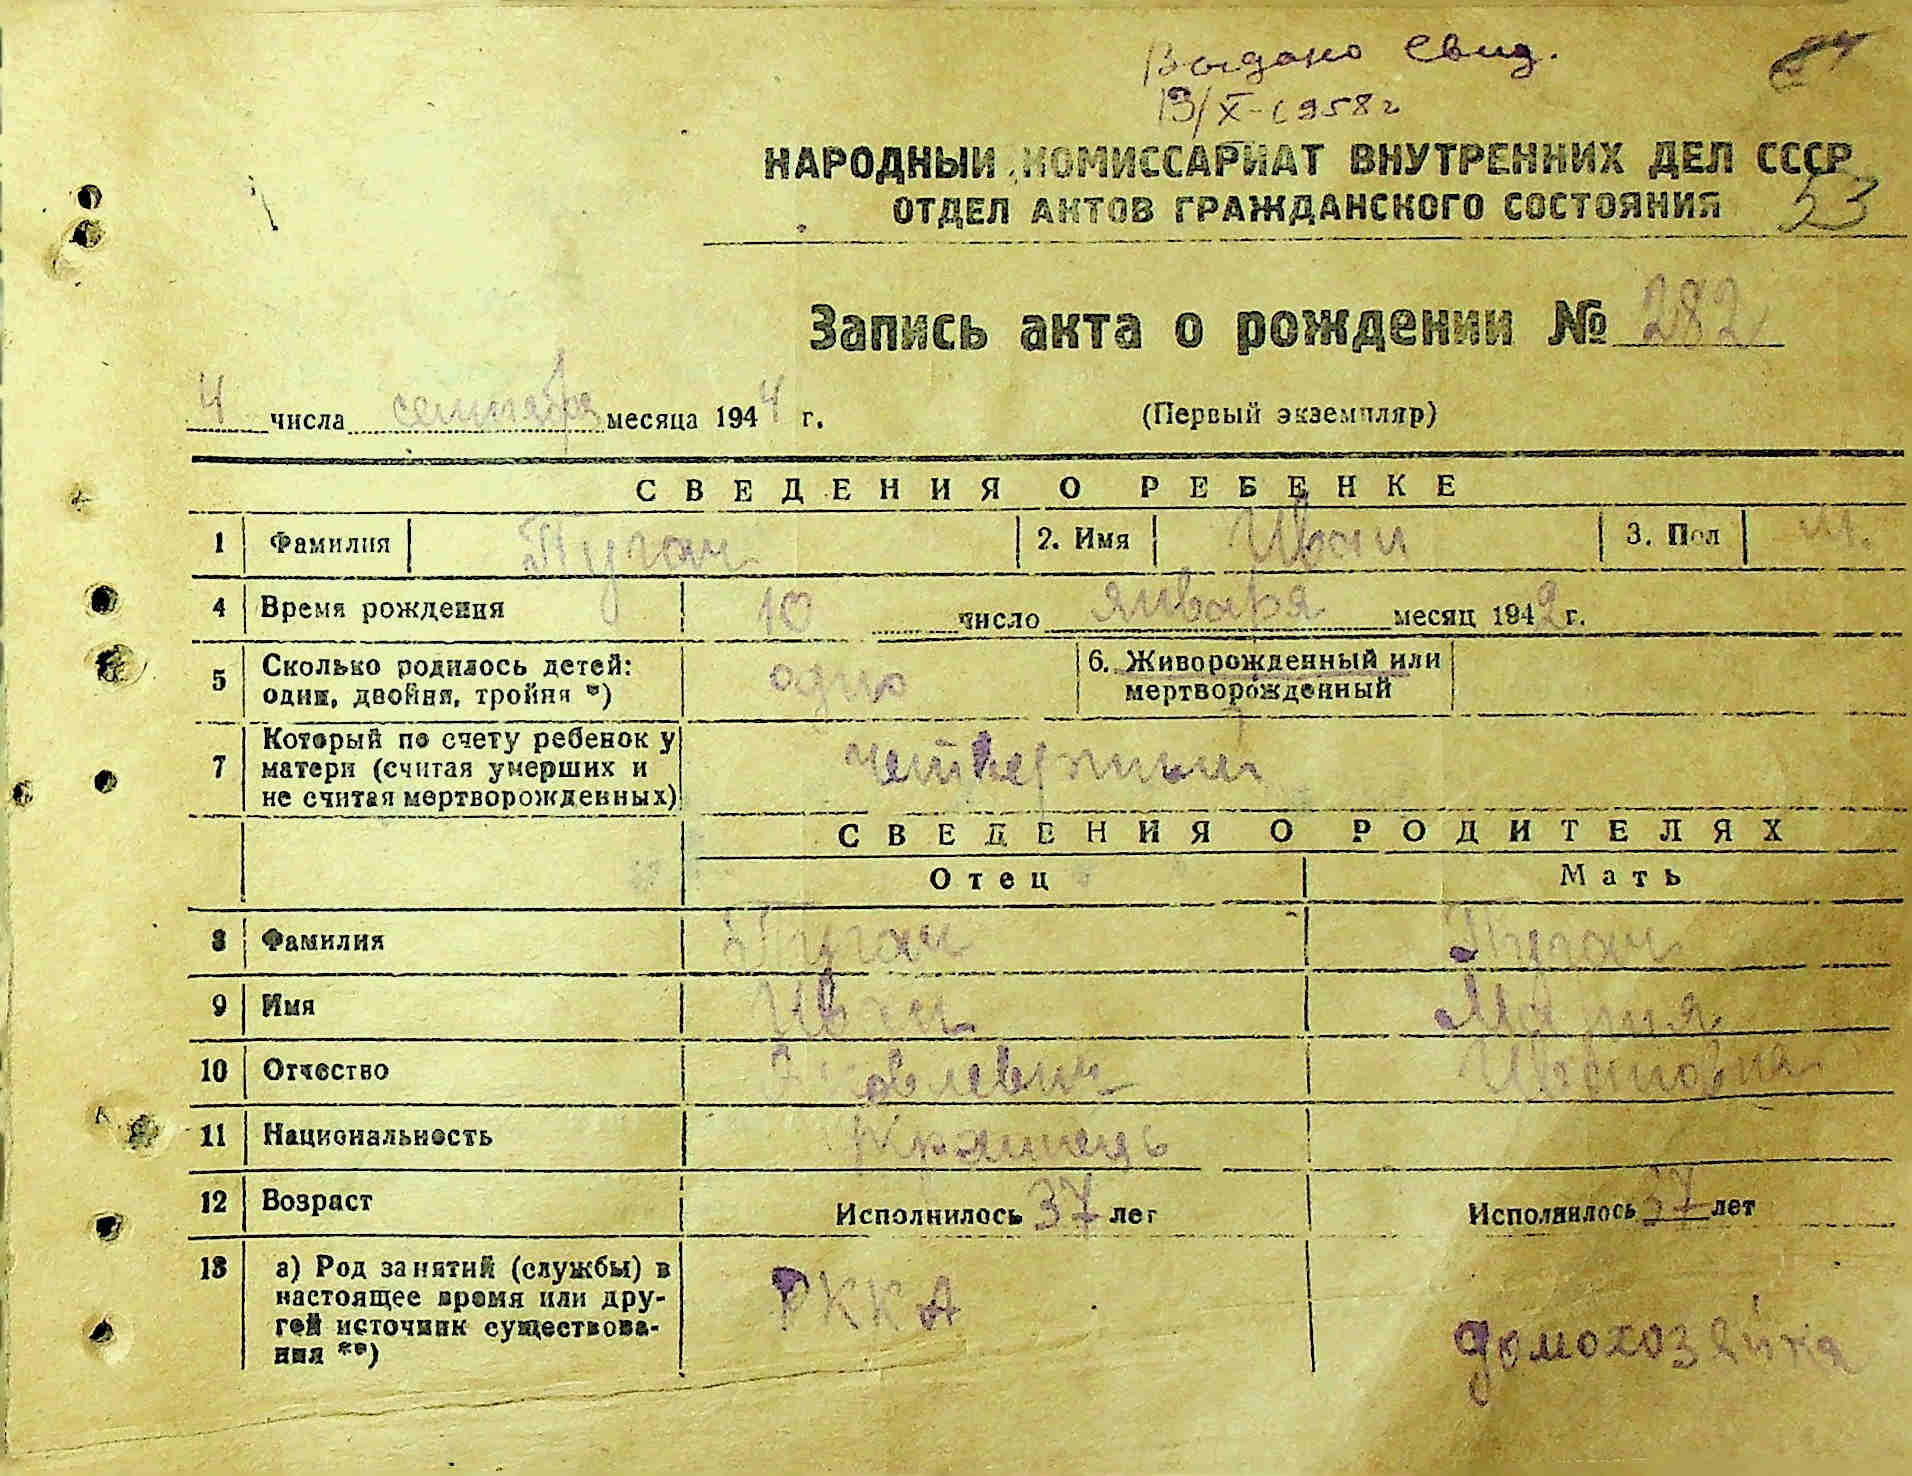 Выдано свид.
13/X-1958г
НАРОДНЫЙ КОМИССАРИАТ ВНУТРЕННИХ ДЕЛ СССР
ОТДЕЛ АКТОВ ГРАЖДАНСКОГО СОСТОЯНИЯ 53
Запись акта о рождении № 282
4 числа сентября месяца 1944 г. (Первый экземпляр)
СВЕДЕНИЯ О РЕБЕНКЕ
1 Фамилия Пуган 2. Имя Иван 3. Пол м.
4 Время рождения 10 число января месяц 1942 г.
5 Сколько родилось детей: один, двойня, тройня *) одно 6. Живорожденный или мертворожденный
7 Который по счету ребенок у матери (считая умерших и не считая мертворожденных) четвертый
СВЕДЕНИЯ О РОДИТЕЛЯХ
Отец Мать
8 Фамилия Пуган Пуган
9 Имя Иван Мария
10 Отчество Яковлевич Ивановна
11 Национальность Украинець
12 Возраст Исполнилось 37 лет Исполнилось 37 лет
13 а) Род занятий (службы) в настоящее время или другой источник существования **) РККА домохозяйка